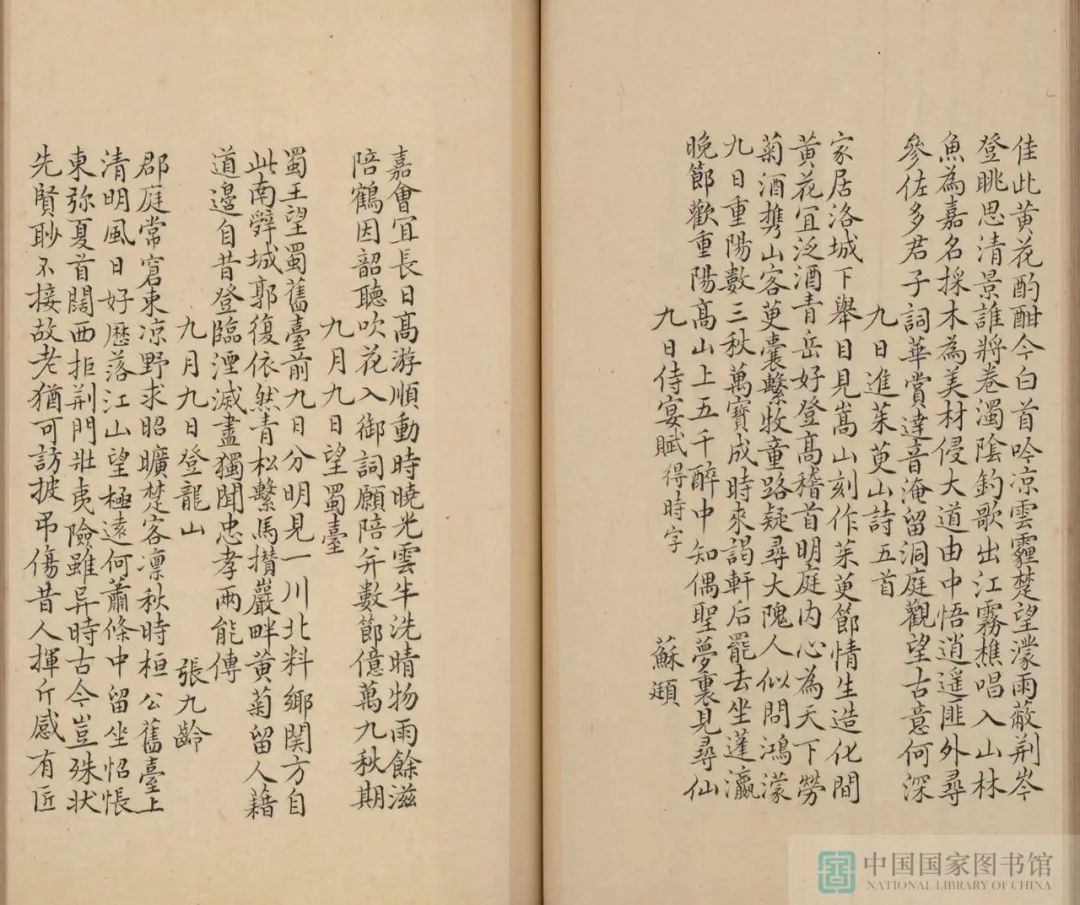 佳此黄花酌酣今白首吟凉雲霾楚望濛雨蔽荆岑
登眺思清景誰將卷濁陰釣歌出江霧樵唱入山林
魚為嘉名採木為美材侵大道由中悟逍遥匪外尋
參佐多君子詞華賞達音淹留洞庭觀望古意何深
九日進茱萸山詩五首
家居洛城下舉目見嵩山刻作茱萸節情生造化間
黄花宜泛酒青岳好登高稽首明庭内心為天下勞
菊酒携山客萸囊繫牧童路疑尋大隗人似問鴻濛
九日重陽數三秋萬寶成時來謁軒后罷去坐蓬瀛
晚節歡重陽高山上五千醉中知偶聖夢裏見尋仙
九日侍宴賦得時字 蘇頲
嘉會宜長日高游順動時曉光雲半洗晴物雨餘滋
陪鶴因韶聽吹花入御詞願陪并數節億萬九秋期
九月九日望蜀臺
蜀王望蜀舊臺前九日分明見一川北料鄉関方自
此南辭城郭復依然青松繫馬攢巖畔黄菊留人藉
道邊自昔登臨湮滅盡獨聞忠孝兩能傳
九月九日登龍山 張九齡
郡庭常窘束凉野求昭曠楚客凜秋時桓公舊臺上
清明風日好歷落江山望極遠何蕭條中留坐怊悵
東弥夏首闊西拒荆門壯夷險雖异時古今豈殊状
先賢眇不接故老猶可訪披弔傷昔人揮斤感有匠
中国国家图书馆
NATIONAL LIBRARY OF CHINA